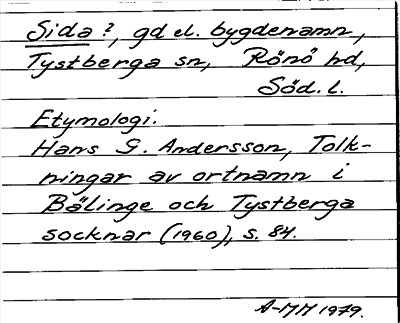 Sida?, gd el. bygdenamn,
Tystberga sn, Rönö hd,
Söd. l.
Etymologi.
Hans G. Andersson, Tolk-
ningar av ortnamn i
Bälinge och Tystberga
socknar (1960), s. 84.
A-MM 1979.